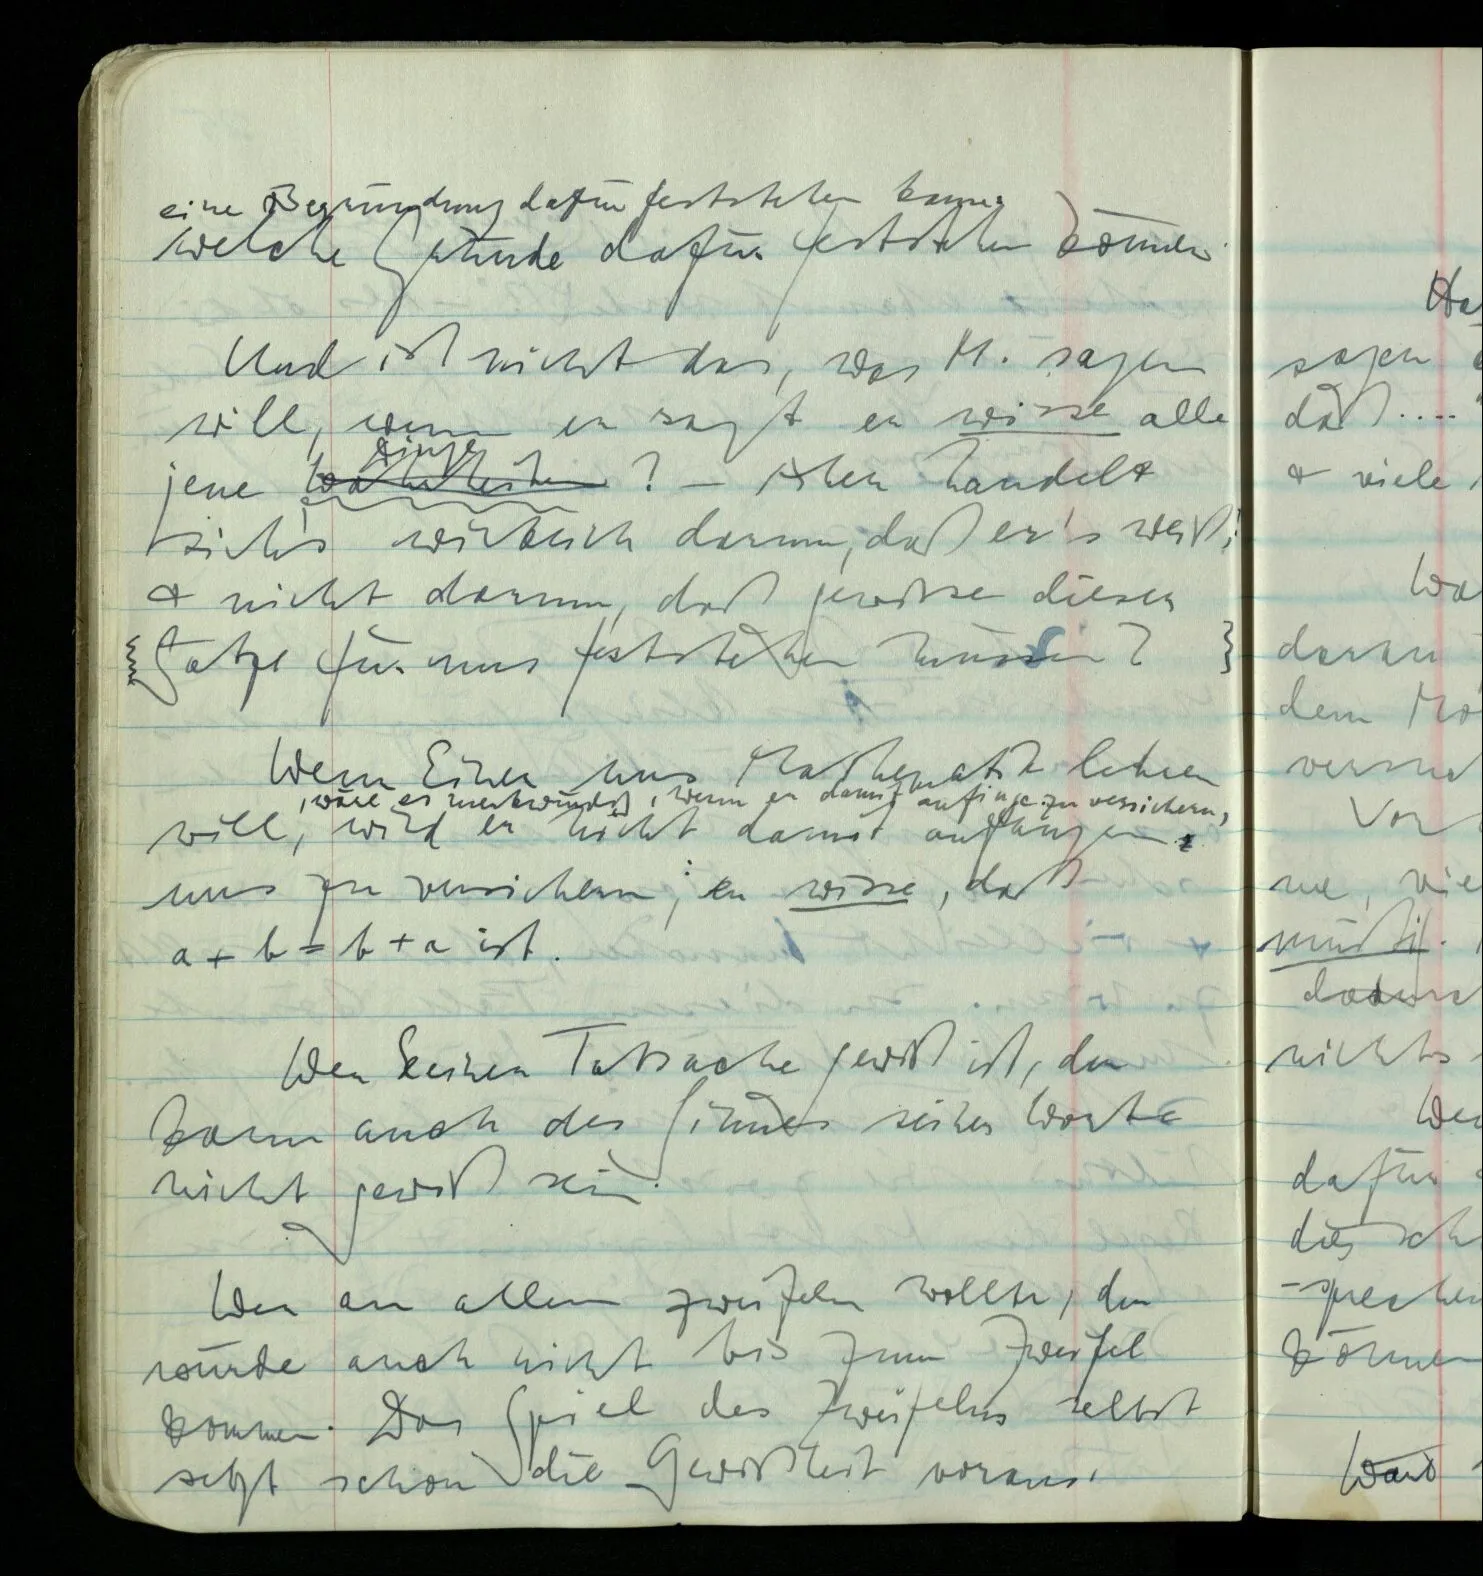 eine Begründung dafür feststehen kann.
welche Gründe dafür feststehen können.
Und ist nicht das, was M. sagen
will, wenn er sagt er wisse alle
Dinge
jene Wahrheiten ? – Aber handelt
sich's wirklich darum, daß er's weiß;
& nicht darum, daß gewisse dieser
Sätze für uns feststehen müssen?
Wenn Einer uns Mathematik lehren
, wäre es merkwürdig, wenn er damit anfinge zu versichern,
will, wird er nicht damit anfangen,
uns zu versichern, er wisse, daß
a + b = b + a ist.
Wer keiner Tatsache gewiß ist, der
kann auch des Sinnes seiner Worte
nicht gewiß sein.
Wer an allem zweifeln wollte, der
würde auch nicht bis zum Zweifel
kommen. Das Spiel des Zweifelns selbst
setzt schon die Gewißheit voraus.
sagen
daß ...."
& viele
daran
dem
Vor
müßig.
nichts
dafür
dies
können